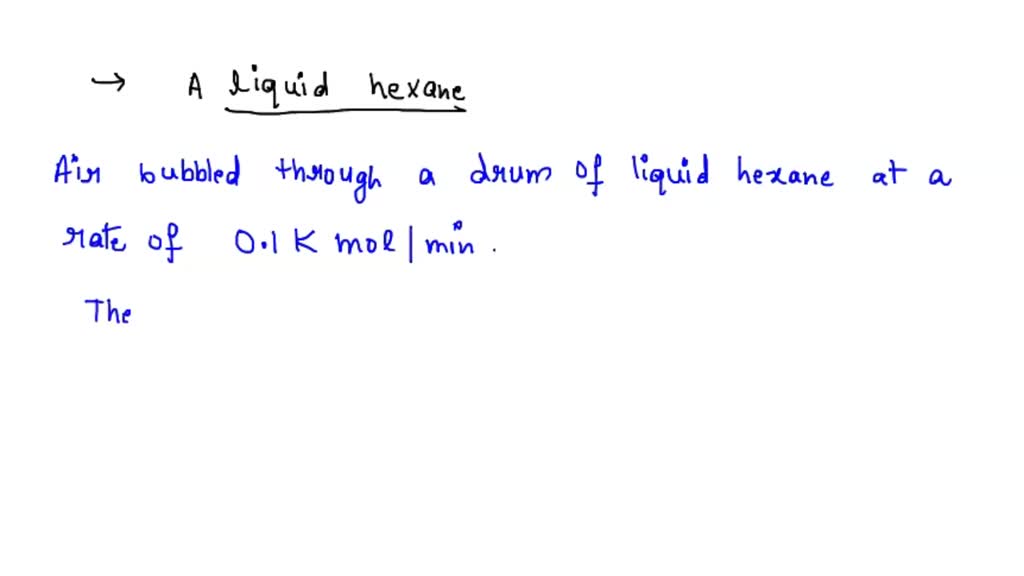 → A liquid hexane
Air bubbled through a drum of liquid hexane at a
rate of 0.1 K mol | min .
The